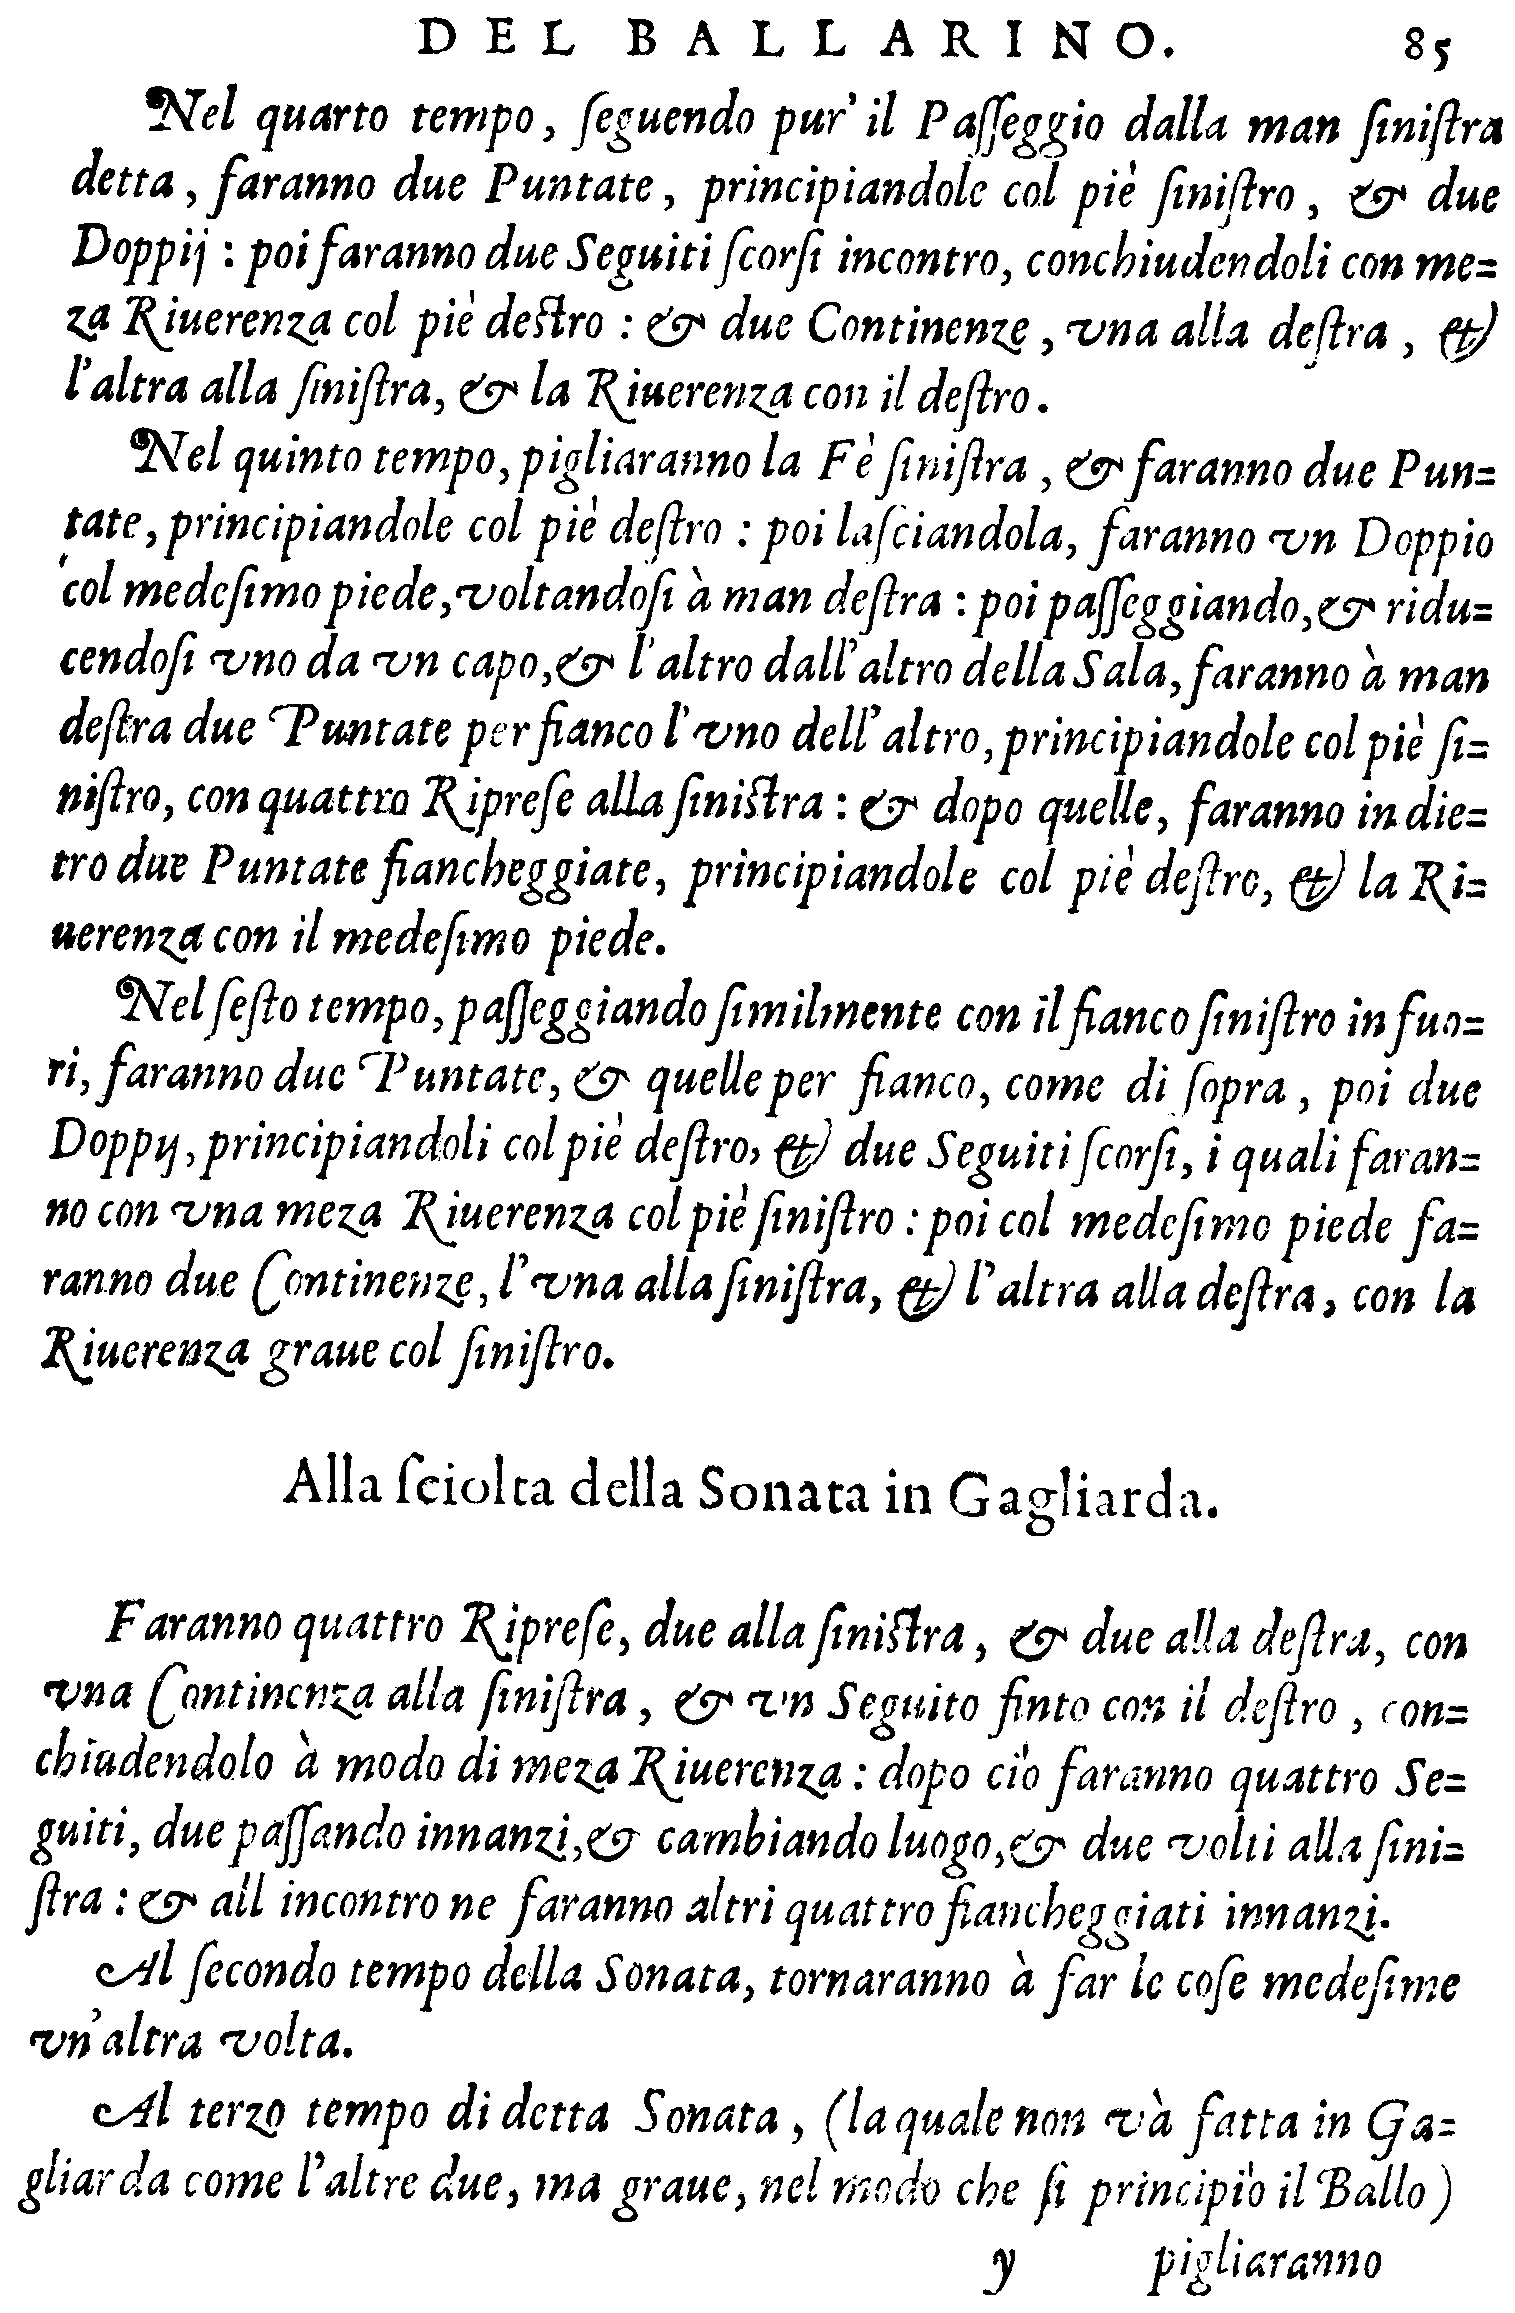 DEL BALLARINO. 85
Nel quarto tempo, ſeguendo pur' il Paſſeggio dalla man ſiniſtra
detta, faranno due Puntate, principiandole col piè ſiniſtro, & due
Doppij: poi faranno due Seguiti ſcorſi incontro, conchiudendoli con me=
za Riuerenza col piè deſtro: & due Continenze, vna alla deſtra, &
l'altra alla ſiniſtra, & la Riuerenza con il deſtro.
Nel quinto tempo, pigliaranno la Fè ſiniſtra, & faranno due Pun=
tate, principiandole col piè deſtro: poi laſciandola, faranno vn Doppio
col medeſimo piede, voltandoſi à man deſtra: poi paſſeggiando, & ridu=
cendoſi vno da vn capo, & l'altro dall'altro della Sala, faranno à man
deſtra due Puntate per fianco l'vno dell'altro, principiandole col piè ſi=
niſtro, con quattro Ripreſe alla ſiniſtra: & dopo quelle, faranno in die=
tro due Puntate fiancheggiate, principiandole col piè deſtro, & la Ri=
uerenza con il medeſimo piede.
Nel ſeſto tempo, paſſeggiando ſimilmente con il fianco ſiniſtro in fuo=
ri, faranno due Puntate, & quelle per fianco, come di ſopra, poi due
Doppij, principiandoli col piè deſtro, & due Seguiti ſcorſi, i quali faran=
no con vna meza Riuerenza col piè ſiniſtro: poi col medeſimo piede fa=
ranno due Continenze, l'vna alla ſiniſtra, & l'altra alla deſtra, con la
Riuerenza graue col ſiniſtro.
Alla ſciolta della Sonata in Gagliarda.
Faranno quattro Ripreſe, due alla ſiniſtra, & due alla deſtra, con
vna Continenza alla ſiniſtra, & vn Seguito finto con il deſtro, con=
chiudendolo à modo di meza Riuerenza: dopo ciò faranno quattro Se=
guiti, due paſſando innanzi, & cambiando luogo, & due volti alla ſini=
ſtra: & all incontro ne faranno altri quattro fiancheggiati innanzi.
Al ſecondo tempo della Sonata, tornaranno à far le coſe medeſime
vn'altra volta.
Al terzo tempo di detta Sonata, (la quale non và fatta in Ga=
gliarda come l'altre due, ma graue, nel modo che ſi principiò il Ballo)
y pigliaranno